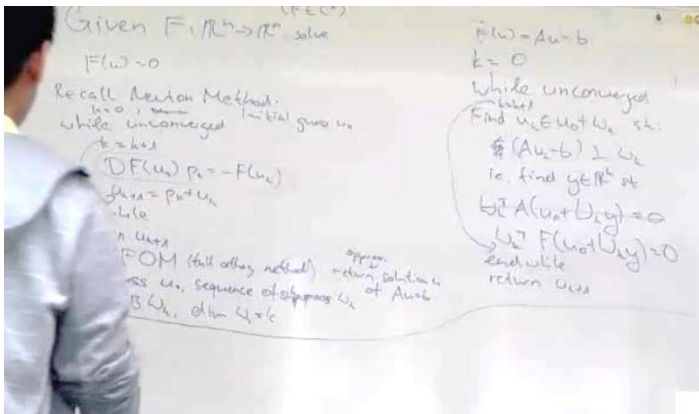 (F ∈ C¹)
Given F: ℝⁿ→ℝⁿ, solve
F(u)=0
Recall Newton Method:
k=0, initial guess u₀
while unconverged
k=k+1
DF(uₖ) pₖ = -F(uₖ)
uₖ₊₁ = pₖ+uₖ
while
uₖ₊₁
FOM (full orthog method) return approx. solution
of Au=b
ess u₀, sequence of subspaces Wₖ
Wₖ, dim Wₖ=k
F(u)=Au-b
k=0
while unconverged
k=k+1
Find uₖ∈u₀+Wₖ st:
(Auₖ-b) ⊥ Wₖ
ie. find y∈ℝᵏ st
Wₖᵀ A(u₀+Wₖy)=0
Wₖᵀ F(u₀+Wₖy)=0
end while
return uₖ₊₁